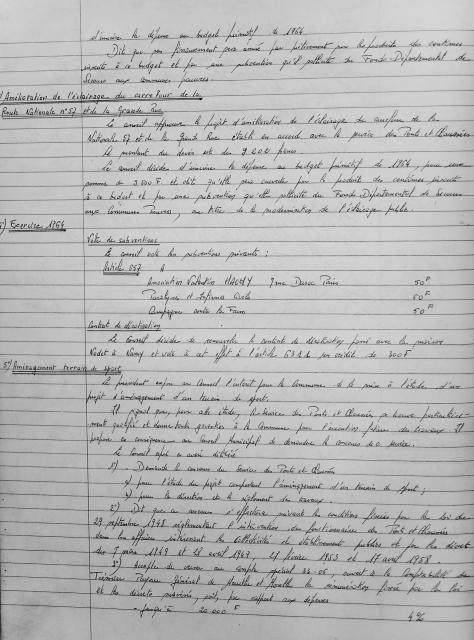 d'inscrire la dépense au budget primitif de 1964
Dit que son financement sera assuré par prélèvement sur les produits des centimes
inscrits à ce budget et par une subvention qu'il sollicite du Fonds Départemental de
Secours aux communes pauvres
Amélioration de l'éclairage du carrefour de la
Route Nationale n° 57 et de la Grande Rue
Le conseil approuve le projet d'amélioration de l'éclairage du carrefour de la
Nationale 57 et de la Grande Rue établi en accord avec le service des Ponts et Chaussées
Le montant du devis est de 9 000 francs
Le conseil décide d'inscrire la dépense au budget primitif de 1964 pour une
somme de 3 000 F et dit qu'elle sera couverte par le produit des centimes inscrits
à ce budget et par une subvention qu'elle sollicite du Fonds Départemental de Secours
aux Communes Pauvres, au titre de la modernisation de l'éclairage public.
Exercice 1964
Vote de subventions
Le conseil vote les subventions suivantes :
Article 657
Association Valentin HAÜY 9 rue Duroc Paris 50 F
Paralysés et Infirmes Civils 50 F
Campagne contre la Faim 50 F
Contrat de dératisation
Le Conseil décide de renouveler le contrat de dératisation passé avec la maison
à Nancy et vote à cet effet à l'article un crédit de 300 F
5°) Aménagement terrain de sport
Le président expose au Conseil l'intérêt pour la Commune de la mise à l'étude d'un
projet d'aménagement d'un terrain de sport.
Il signale que, pour cette étude, le service des Ponts et Chaussées se trouve particulière-
ment qualifié et donne toute garantie à la Commune pour l'exécution future des travaux. Il
propose en conséquence au Conseil Municipal de demander le concours de ce service.
Le Conseil après en avoir délibéré
1°) - Demande le concours du Service des Ponts et Chaussées
pour l'étude du projet comportant l'aménagement d'un terrain de sport ;
pour la direction et le règlement des travaux.
2°) Dit que ce concours s'effectuera suivant les conditions fixées par la loi du
29 septembre 1948 réglementant l'intervention des fonctionnaires des Ponts et Chaussées
dans les affaires intéressant les collectivités et établissements publics et par les décrets
des 7 mars 1949 et 28 avril 1949 27 février 1953 et 17 avril 1958.
3°) Accepte de verser au compte spécial ouvert à la Comptabilité du
Trésorier Payeur Général de Meurthe et Moselle la rémunération fixée par la loi
et les décrets soit, par rapport aux dépenses
- jusqu'à 20.000 F 4%